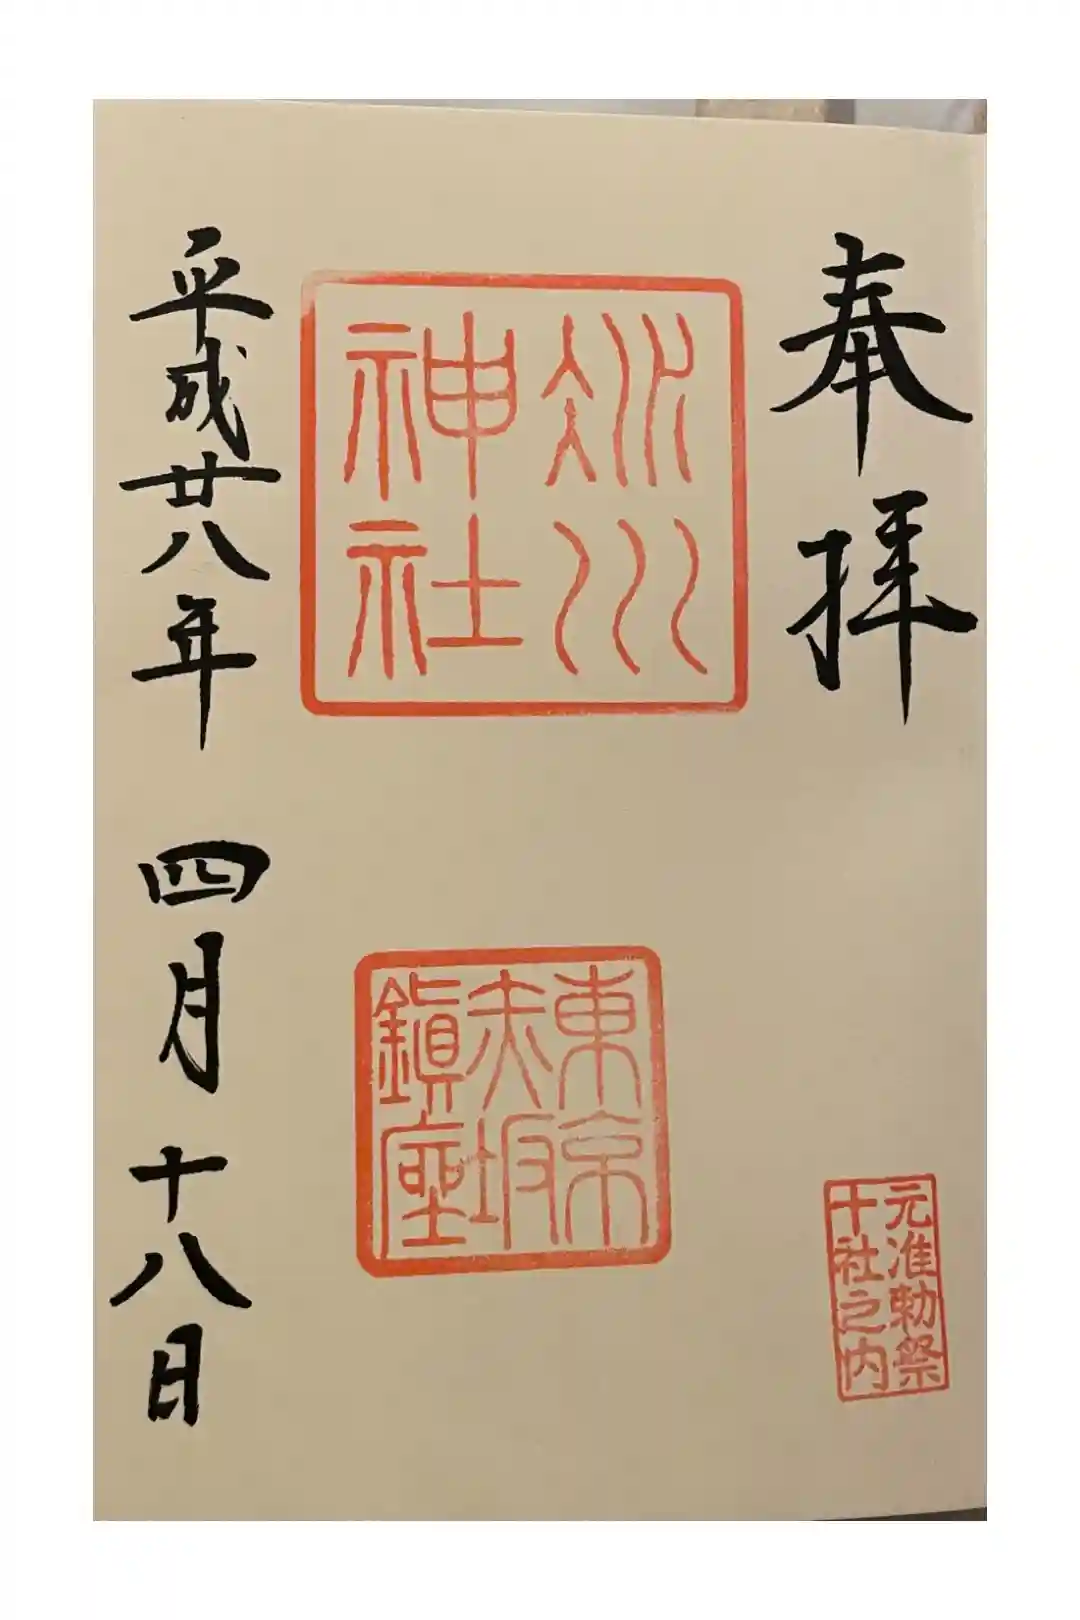 奉拝
元准勅祭
十社之内
冰川
神社
東京
赤坂
鎭座
平成廿八年 四月 十八日